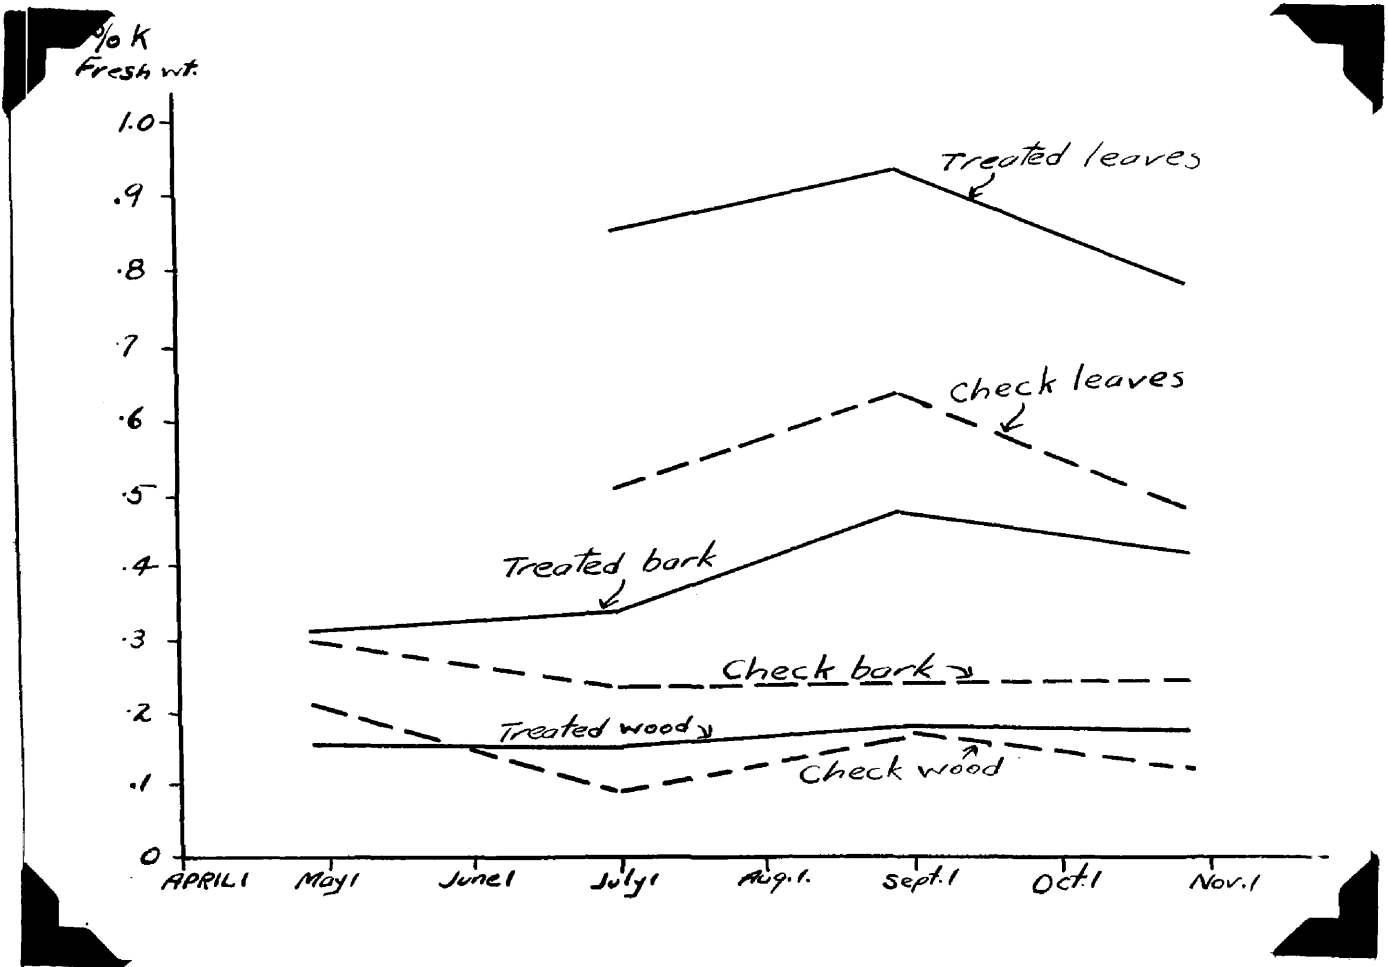 % K
Fresh wt.
1.0
.9
.8
.7
.6
.5
.4
.3
.2
.1
0
Treated leaves
Check leaves
Treated bark
Check bark
Treated wood
Check wood
APRIL 1 May 1 June 1 July 1 Aug. 1. Sept. 1 Oct. 1 Nov. 1